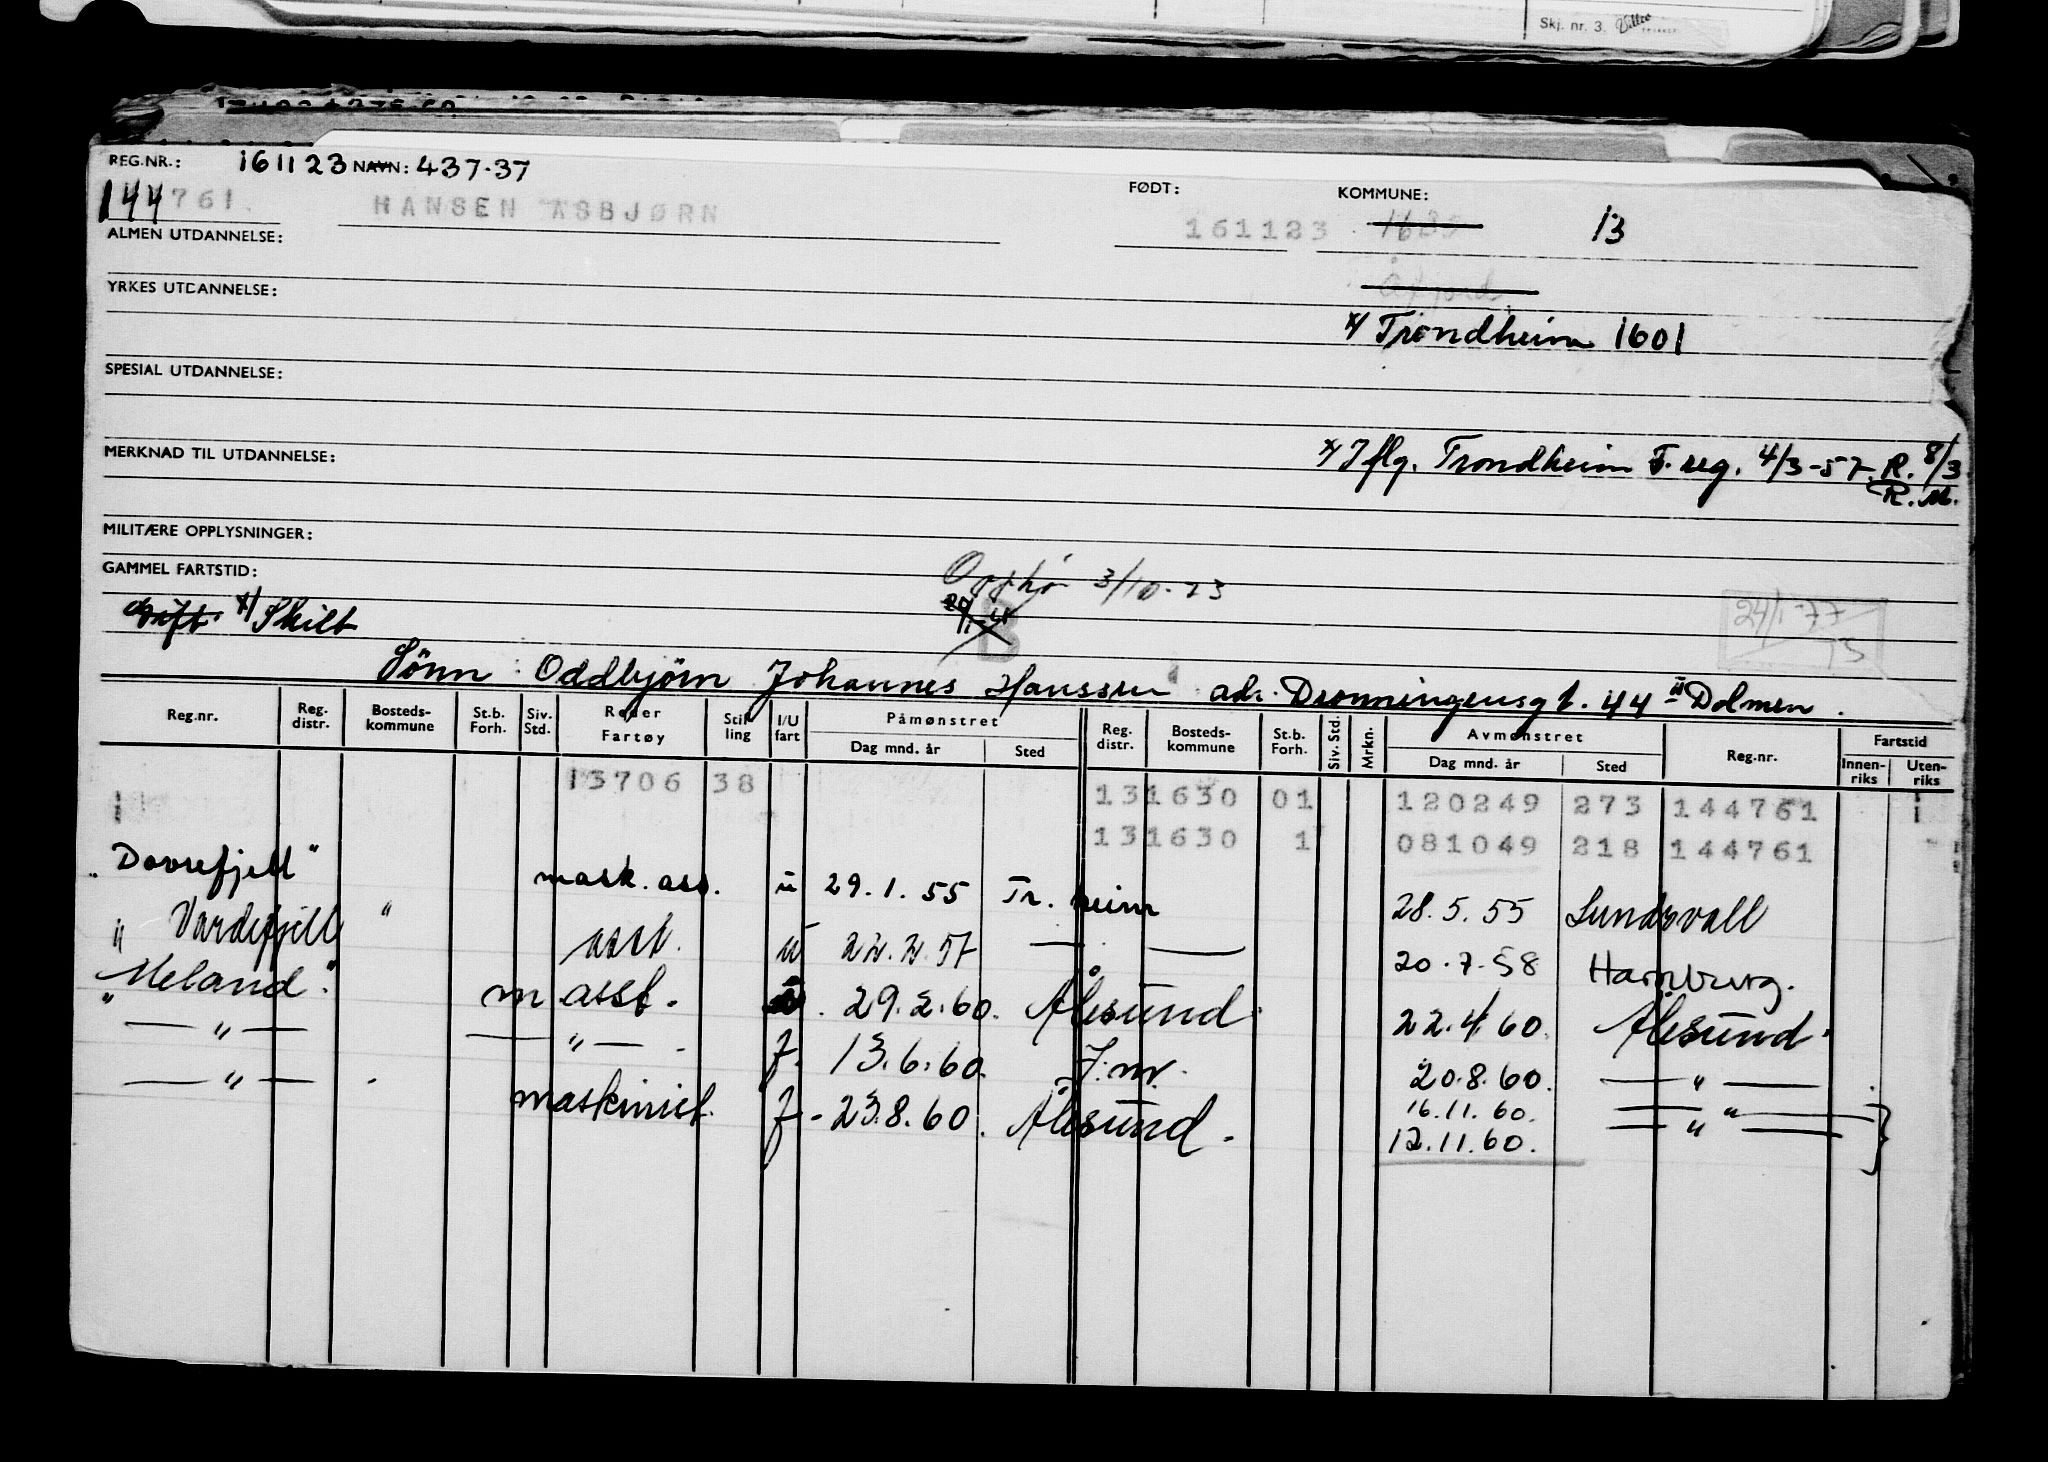 Skj. nr. 3.
REG.NR.: 161123 NAVN: 437.37
144761. HANSEN ASBJØRN
FØDT: 161123
KOMMUNE: 13
ALMEN UTDANNELSE:
YRKES UTDANNELSE:
x/ Trondheim 1601
SPESIAL UTDANNELSE:
MERKNAD TIL UTDANNELSE:
x/ Iflg. Trondheim F. reg. 4/3-57. R. 8/3
R. M.
MILITÆRE OPPLYSNINGER:
GAMMEL FARTSTID:
Opphør 3/10-23
gift. x/ Skilt
B
24/1-77
Sönn: Oddbjørn Johannes Hanssen adr. Dronningensgt. 44 II Dolmen.
Reg.nr. Reg. distr. Bosteds-kommune St.b. Forh. Siv. Std. Reder Fartøy Stil ling I/U fart Påmønstret Dag mnd. år Sted Reg. distr. Bosteds-kommune St.b. Forh. Siv. Std. Mrkn. Avmønstret Dag mnd. år Sted Reg.nr. Fartstid Innen-riks Uten-riks
13706 38 131630 01 120249 273 144761
131630 1 081049 218 144761
"Dovrefjell" mask. ass. u 29.1.55 Tr. heim 28.5.55 Sundsvall
" Vardefjell " asst. u 22.2.57 — — 20.7.58 Hamburg.
"Meland". m asst. u. 29.2.60. Ålesund. 22.4.60. Ålesund.
— " — — " — . f. 13.6.60. J.nr. 20.8.60. — " —
— " — . maskinist. f. - 23.8.60. Ålesund. 16.11.60. — " —
12.11.60. — " —